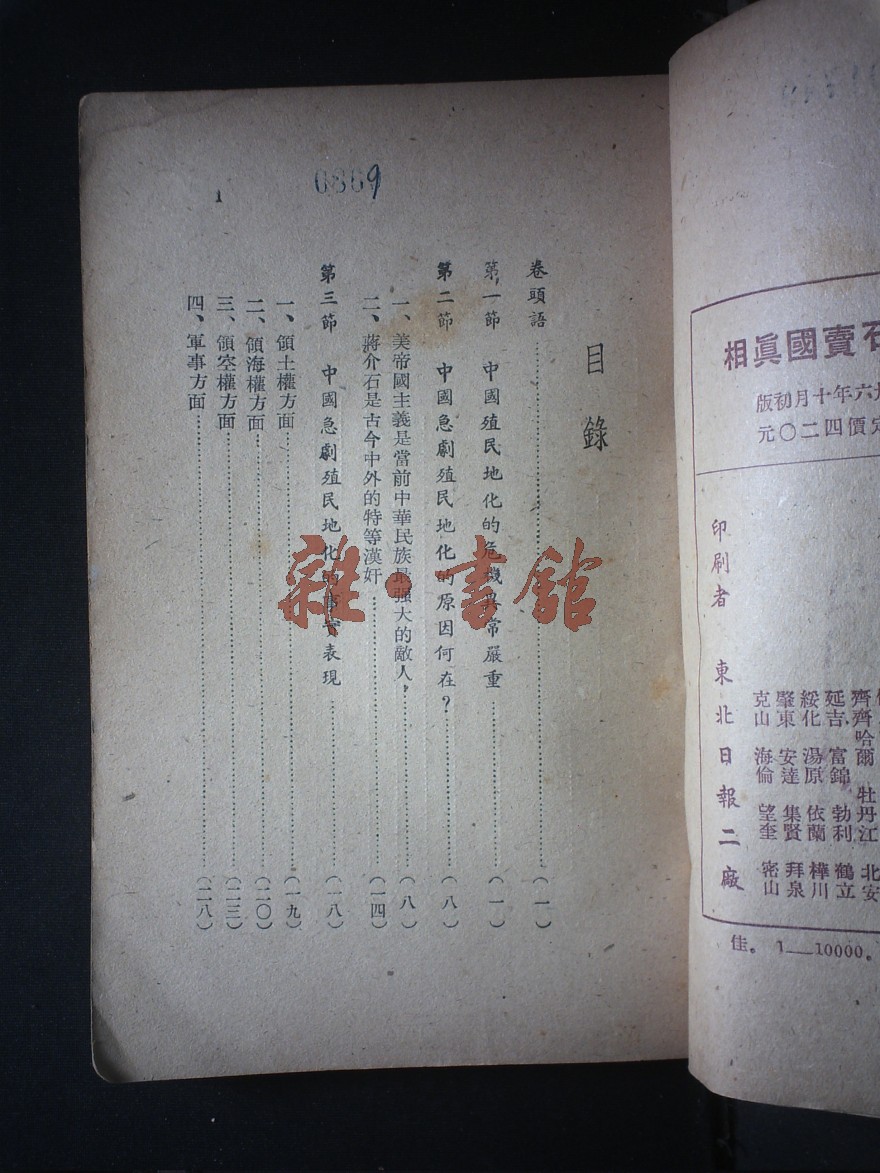 0869
1
目錄
卷頭語……(一)
第一節 中國殖民地化的危機異常嚴重……(一)
第二節 中國急劇殖民地化的原因何在？……(八)
一、美帝國主義是當前中華民族最强大的敵人，……(八)
二、蔣介石是古今中外的特等漢奸……(一四)
第三節 中國急劇殖民地化的事實表現……(一八)
一、領土權方面……(一九)
二、領海權方面……(二〇)
三、領空權方面……(二三)
四、軍事方面……(二八)
雜·書館
石賣國眞相
六年十月初版
定價四二〇元
北安
齊齊哈爾 牡丹江
延吉 富錦 勃利 鶴立
綏化 湯原 依蘭 樺川
肇東 安達 集賢 拜泉
克山 海倫 望奎 密山
印刷者 東北日報二廠
佳。1—10000。